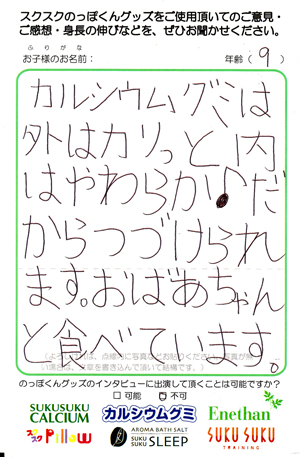 スクスクのっぽくんグッズをご使用頂いてのご意見・
ご感想・身長の伸びなどを、ぜひお聞かせください。
ふりがな
お子様のお名前： 年齢( 9 )
カルシウムグミは
外はカリっと 内
はやわらか♪だ
からつづけられ
ます。おばあちゃん
と食べています。
のっぽくんグッズのインタビューに出演して頂くことは可能ですか？
□ 可能 不可
SUKUSUKU CALCIUM
カルシウムグミ
Enethan
スクスク Pillow
AROMA BATH SALT
SUKU SUKU SLEEP
SUKU SUKU
TRAINING